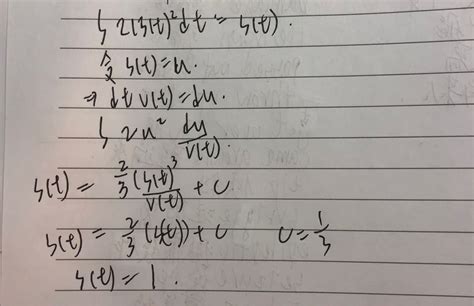 ∫ 2(s(t))² dt = s(t).
令 s(t) = u.
⇒ dt v(t) = du.
∫ 2u² du/v(t).
s(t) = 2/3 (s(t))³/v(t) + c
s(t) = 2/3 (s(t)) + c    c = 1/3
s(t) = 1.